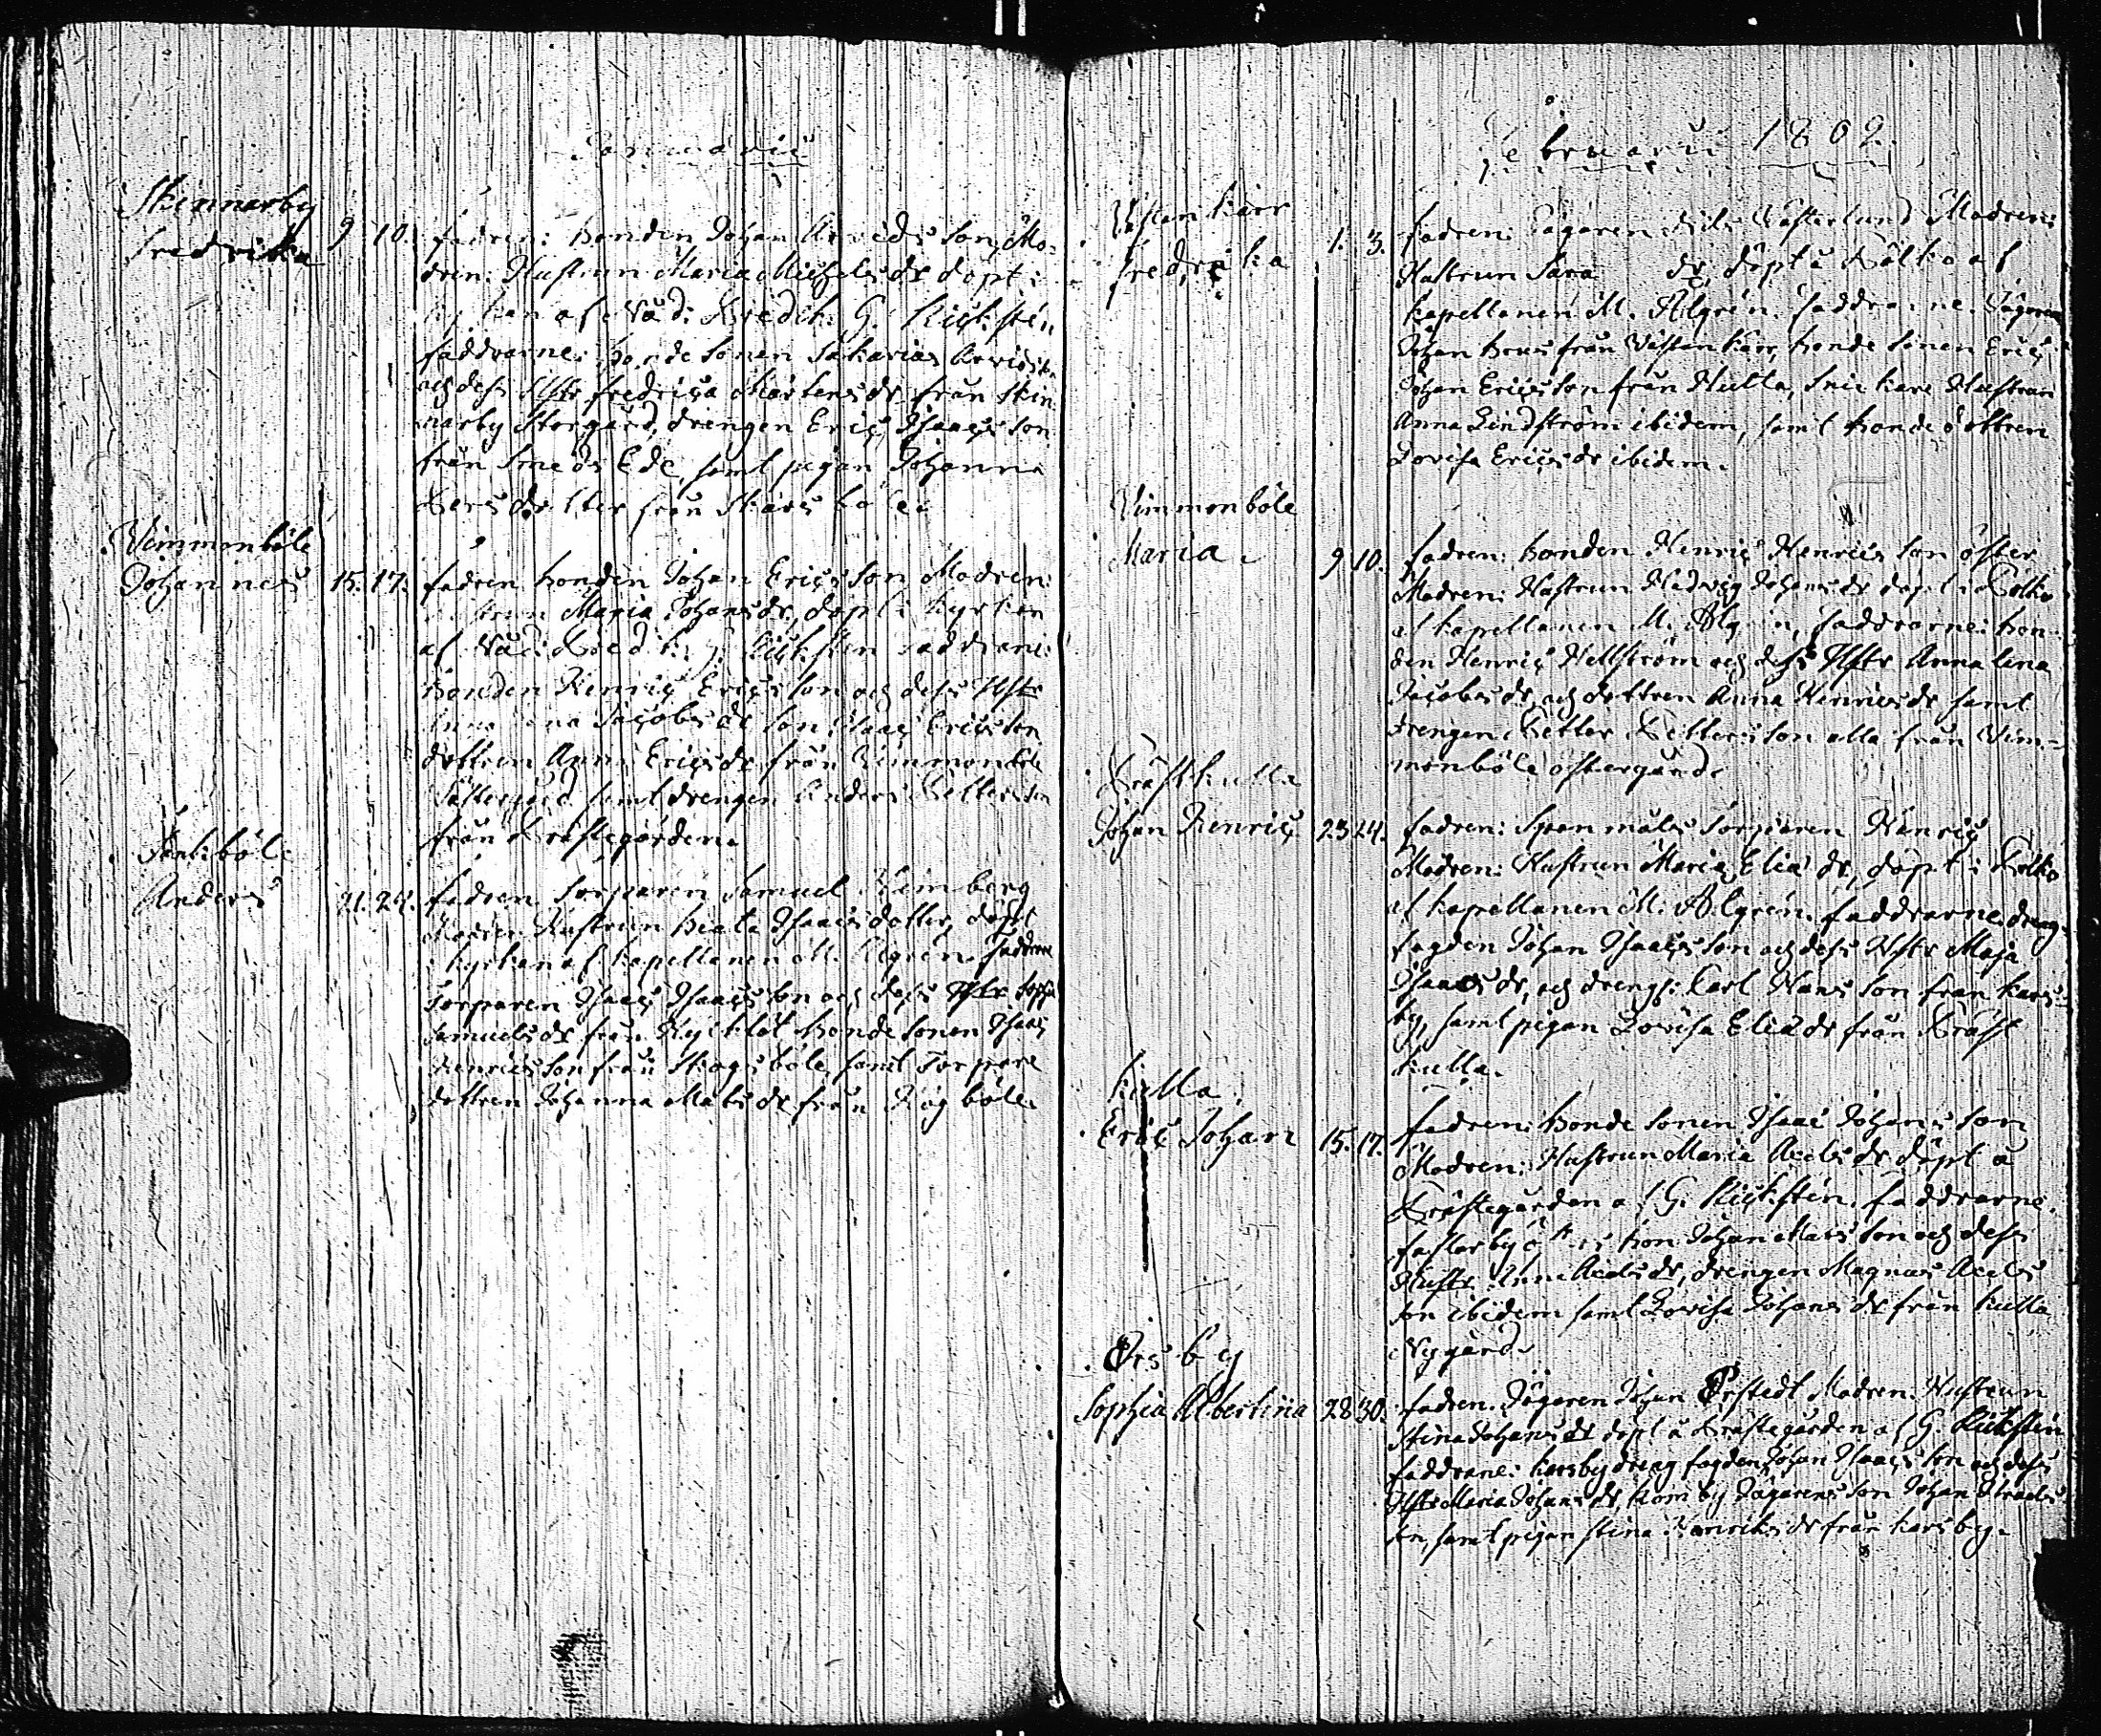 Januarii
Skinnarby
Fredrika
9 10. fadren: bonden Johan Arvids son, Mo-
dren: Hustrun Maria Michels dr döpt i
kyrkan af Väd: Predik: G. Rickstén
faddrarne: bonde sonen Sakarias Arvids son
och dess Hstr Fredrica Mårtens dr från Skin
narby Storgård, drengen Eric Isaacs son
från Smeds Ede, samt pigan Johanna
från Skärs böle
Vimmonböle
Johannes 15. 17. fadren bonden Johan Erics son Modren:
Maria Johans dr, döpt i kyrkan
af Väd: Predik: G. Rickstén faddrarne:
bonden Henric Erics son och dess Hstr
Jacobs dr son Isaac Erics son
dottren Anna Erics dr från Vimmonböle
Västergård samt drengen Anders Petters son
från Prästegården.
böle
Anders 21. 24. fadren torparen Samuel Heimberg
Modren Hustrun Beata Isaacs dotter, döpt
i kyrkan af kapellanen M. Algrén. faddrarne
torparen Isaac Isaacs son och dess Hstr Sophia
Samuels dr från bonde sonen Isaac
Henrics son från Skogsböle, samt torpare
dottren Johanna Mats dr från böle.
Februarii 1809.
Västankärr
Fredrika 1. 3. fadren: Jägaren Västerlund Modren:
Hustrun Sara dr, döpt i Pölko af
kapellanen M. Algrén. faddrarne. Jägaren
Johan från Västankärr, bonde sonen Eric
Johan Erics son från Hulta, Snickare Hustrun
Anna Lindström ibidem, samt bonde dottren
Lovisa Erics dr ibidem.
Vimmonböle
Maria. 9 10. fadren: bonden Henric Henrics son öster
Modren: Hustrun Hedvig Johans dr döpt i Pölko
af kapellanen M. Algrén, faddrarne: bon
den Henric Hellström och dess Hstr Anna Lena
Jacobs dr, och dottren Anna Henrics dr samt
drengen Petter Petters son alla från Vim-
monböle östergård.
Präst kulla
Johan Henric 23 24. fadren: Spanmåls torparen Henric
Modren: Hustrun Maria Elias dr, döpt i Pölko
af kapellanen M. Algrén. faddrarne dreng-
fogden Johan Isaacs son och dess Hstr Maja
Isaacs dr, och drengs: Carl Hans son från Kars-
by, samt pigan Lovisa Elias dr från Präst
kulla.
Kulla.
Eric Johan 15. 17. fadren: bonde sonen Isaac Johans son
Modren: Hustrun Maria Axels dr, döpt å
Prästegården af G. Rickstén. faddrarne.
fasterby bon Johan Mats son och dess
Hustr: Anna Axels dr, drengen Magnus Axels
son ibidem samt Lovisa Johans dr från Kulla
Nygård.
Örsby
Sophia Albertina 28 30. fadren. Jägaren Johan Örstedt Modren. Hustrun
Stina Johans dr döpt å Prästegården af G. Rickstén
faddrarne: Karsby dreng fogden Johan Isaacs son och dess
Hstr Maria Johans dr, Jägarens son Johan
son, samt pigan Stina Henriks dr från Karsby.